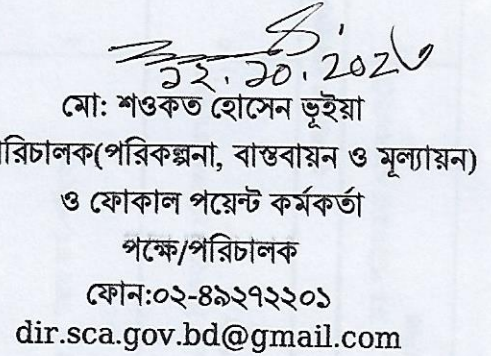 ১২.১০.২০২৩
মো: শওকত হোসেন ভূইয়া
রিচালক(পরিকল্পনা, বাস্তবায়ন ও মূল্যায়ন)
ও ফোকাল পয়েন্ট কর্মকর্তা
পক্ষে/পরিচালক
ফোন:০২-৪৯২৭২২০১
dir.sca.gov.bd@gmail.com